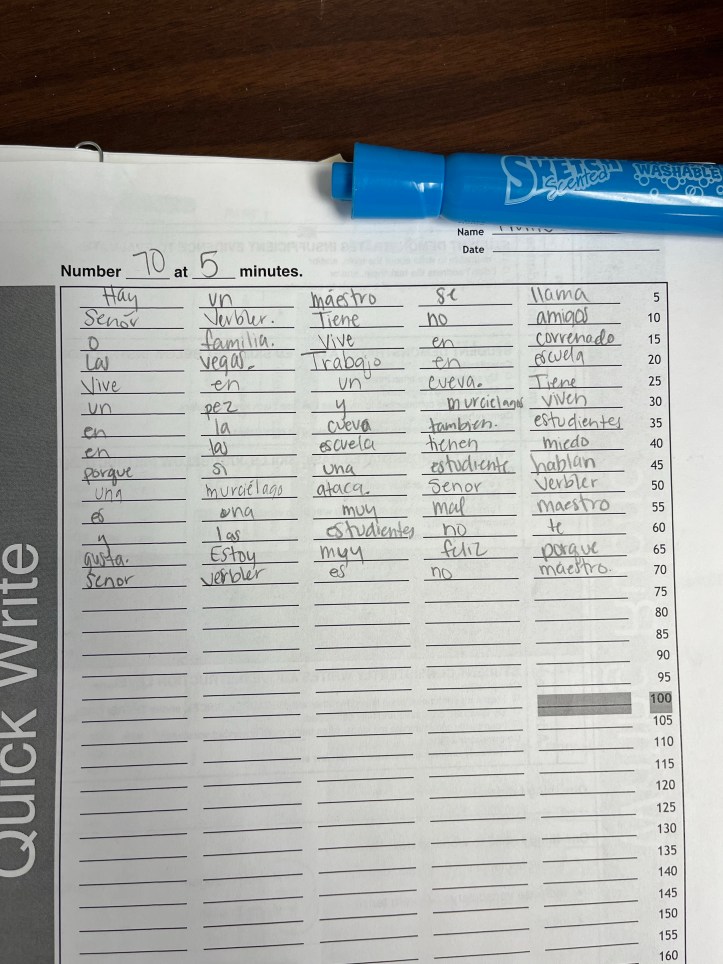 SKETCH WASHABLE
Scented
Name
Date
Number 70 at 5 minutes.
Hay un maestro se llama 5
Señor Verbler. Tiene no amigos 10
O familia. Vive en correnado 15
Las vegas. Trabajo en escuela 20
Vive en un cueva. Tiene 25
un pez y murcielagos viven 30
en la cueva tambien. estudientes 35
en las escuela tienen miedo 40
porque si una estudiente hablan 45
una murciélago ataca. Senor Verbler 50
es una muy mal maestro 55
y las estudientes no te 60
gusta. Estoy muy feliz porque 65
Senor verbler es no maestro. 70
75
80
85
90
95
100
105
110
115
120
125
130
135
140
145
150
155
160
Quick Write